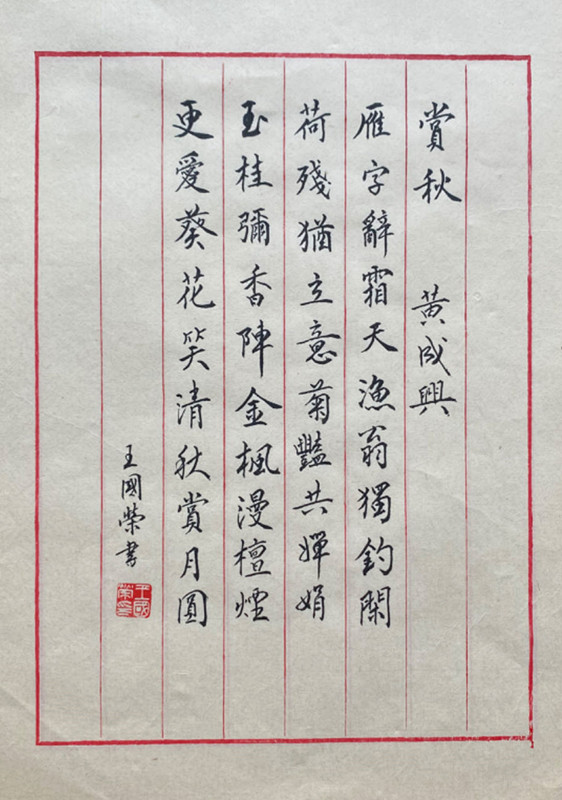 賞秋 黃成興
雁字辭霜天漁翁獨釣閑
荷殘猶立意菊豔共嬋娟
玉桂彌香陣金楓漫檀煙
更愛葵花笑清秋賞月圓
王國榮書
王國榮印